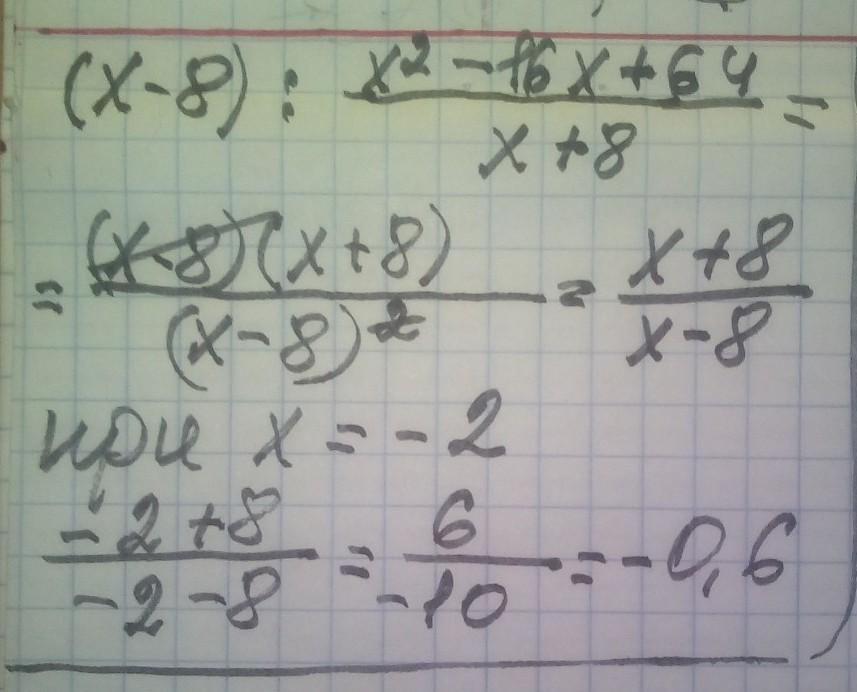 (x-8) : (x² - 16x + 64)/(x+8) =
= (x-8)(x+8)/(x-8)² = (x+8)/(x-8)
при x = -2
(-2+8)/(-2-8) = 6/-10 = -0,6